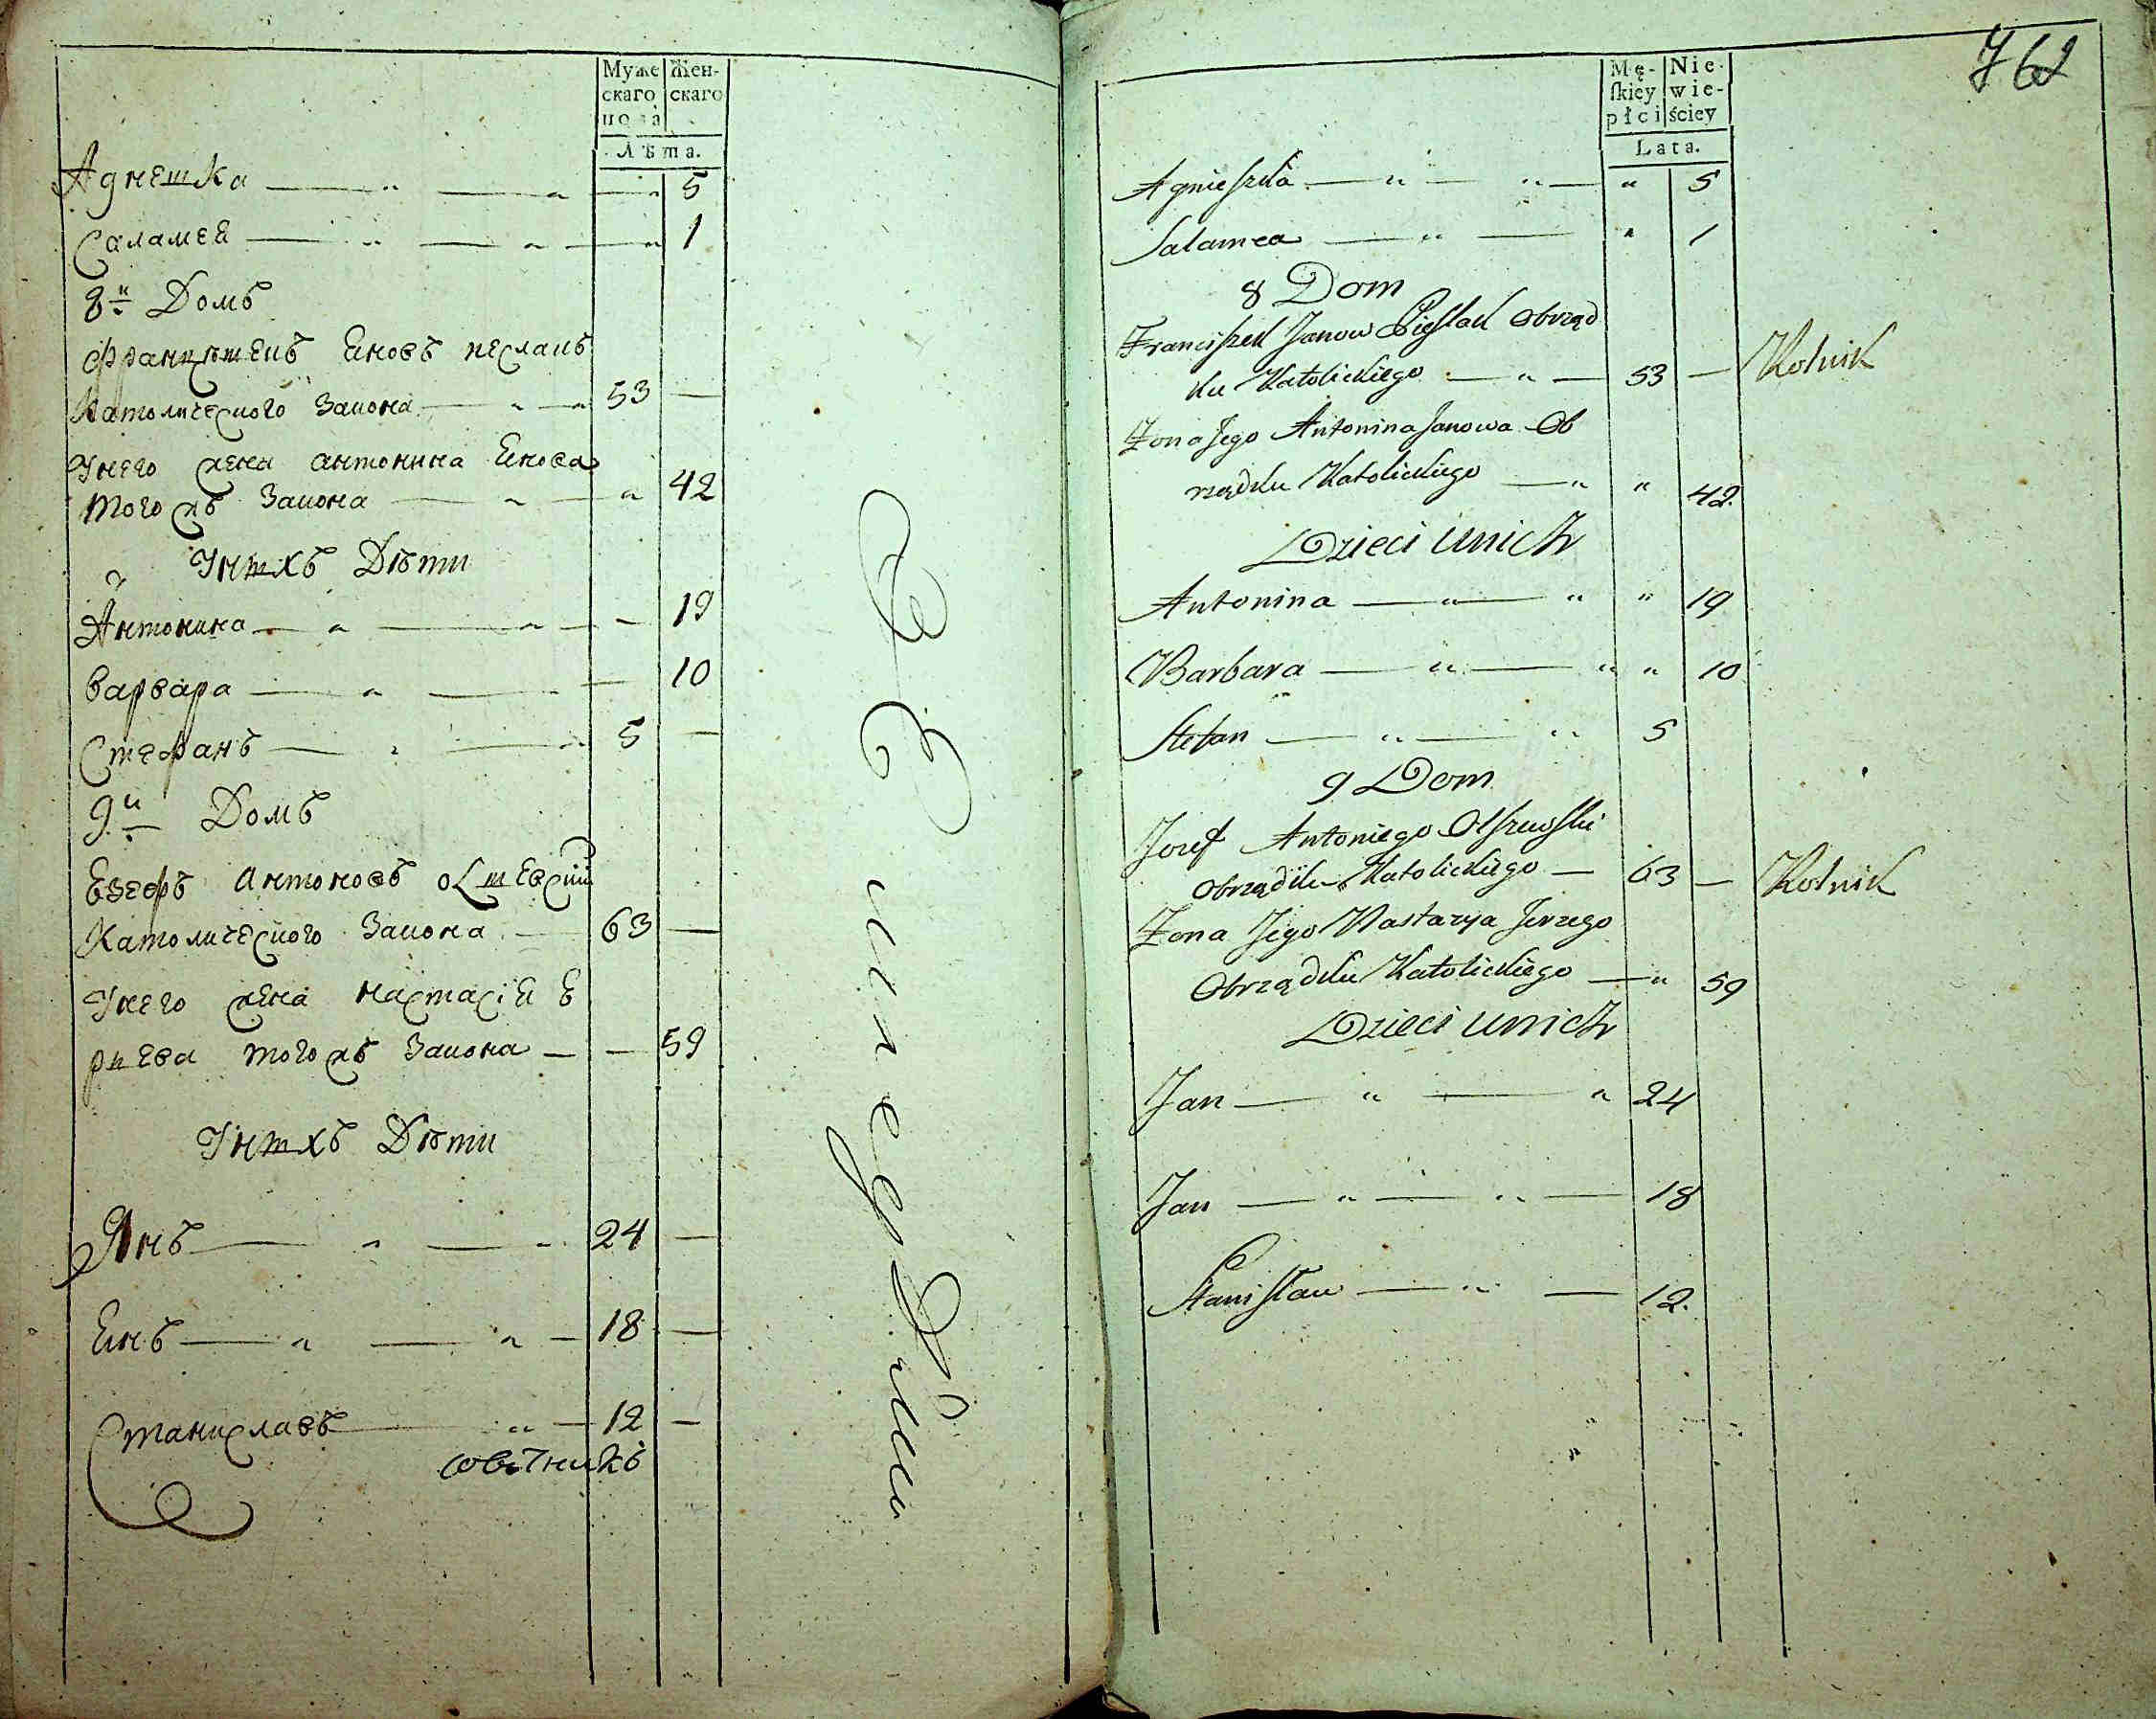 Муже
скаго
пола
Жен-
скаго
Лѣта.
Агнешка — „ — „ — „ 5
Саламея — „ — „ — „ 1
8й Домъ
Францишекъ Яновъ песлакъ
Католического Закона — „ — „ 53 —
Унего жена антонина Янова
того жъ Закона — „ — „ 42
Унихъ Дѣти
Антонина — „ — „ — — 19
варвара — „ — — 10
Стефанъ — „ — „ 5 —
9й Домъ
Езефъ антоновъ олшевский
Католического Закона — 63 —
Унего жена настасія Е
риева того жъ Закона — — 59
Унихъ Дѣти
Янъ — „ — „ 24 —
Янъ — „ — „ — 18 —
Станиславъ — „ — 12 —
совѣтникъ
762
Mę-
ſkiey
płci
Nie-
wie-
ściey
Lata.
Agnieszka — „ — „ — „ 5
Salamea — „ — „ 1
8 Dom
Franciszek Janow Pieslak obrząd
ku Katolickiego — „ — 53 — Rolnik
Żona Jego Antonina Janowa Ob
rządku Katolickiego — „ „ 42
Dzieci unich
Antonina — „ — „ „ 19
Barbara — „ — „ „ 10
Stefan — „ — „ 5
9 Dom
Jozef Antoniego Olszewski
obrządku Katolickiego — 63 — Rolnik
Żona Jego Nastazya Jerzego
Obrządku Katolickiego — „ 59
Dzieci unich
Jan — „ — „ 24
Jan — „ — „ — 18
Stanisław — „ — 12.